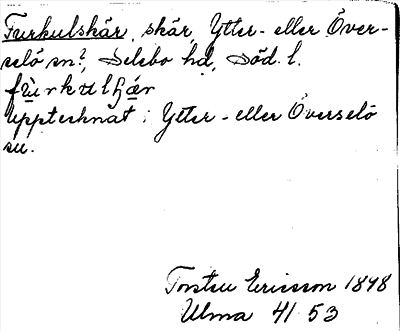 Furkulskär, skär, Ytter- eller Över-
selö sn?, Selebo hd, Söd. l.
fùrkulʃæ̀r
Upptecknat i Ytter- eller Överselö
sn.
Torsten Ericsson 1898
Ulma 41 53